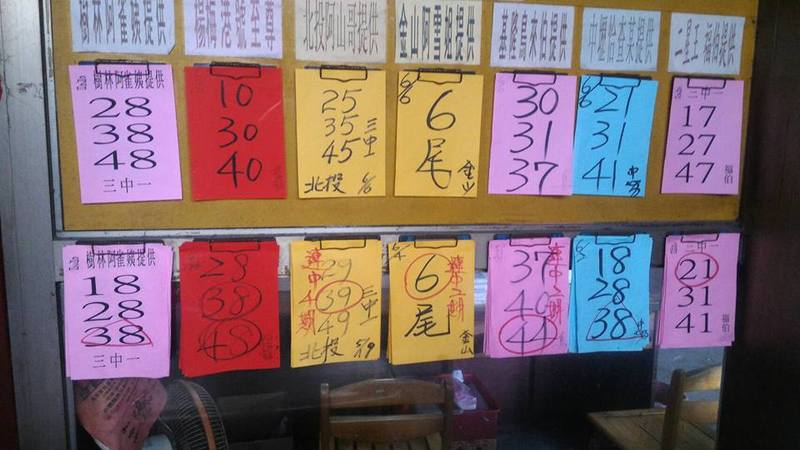 樹林阿雀姨提供
楊梅港號至尊
北投阿山哥提供
金山阿雪姐提供
基隆鳥林伯提供
中壢怡奈茉提供
二星王 福伯提供
樹林阿雀姨提供
28
38
48
三中一
10
30
40
25
35
45
三中一
北投
6/6
6
尾
金山
30
31
37
6/6
21
31
41
三中一
17
27
47
福伯
樹林阿雀姨提供
18
28
38
三中一
28
38
48
連中4期
29
39
49
三中一
北投
6/4
6
尾
連中二期
金山
37
40
44
連中二期
18
28
38
三中一
21
31
41
福伯